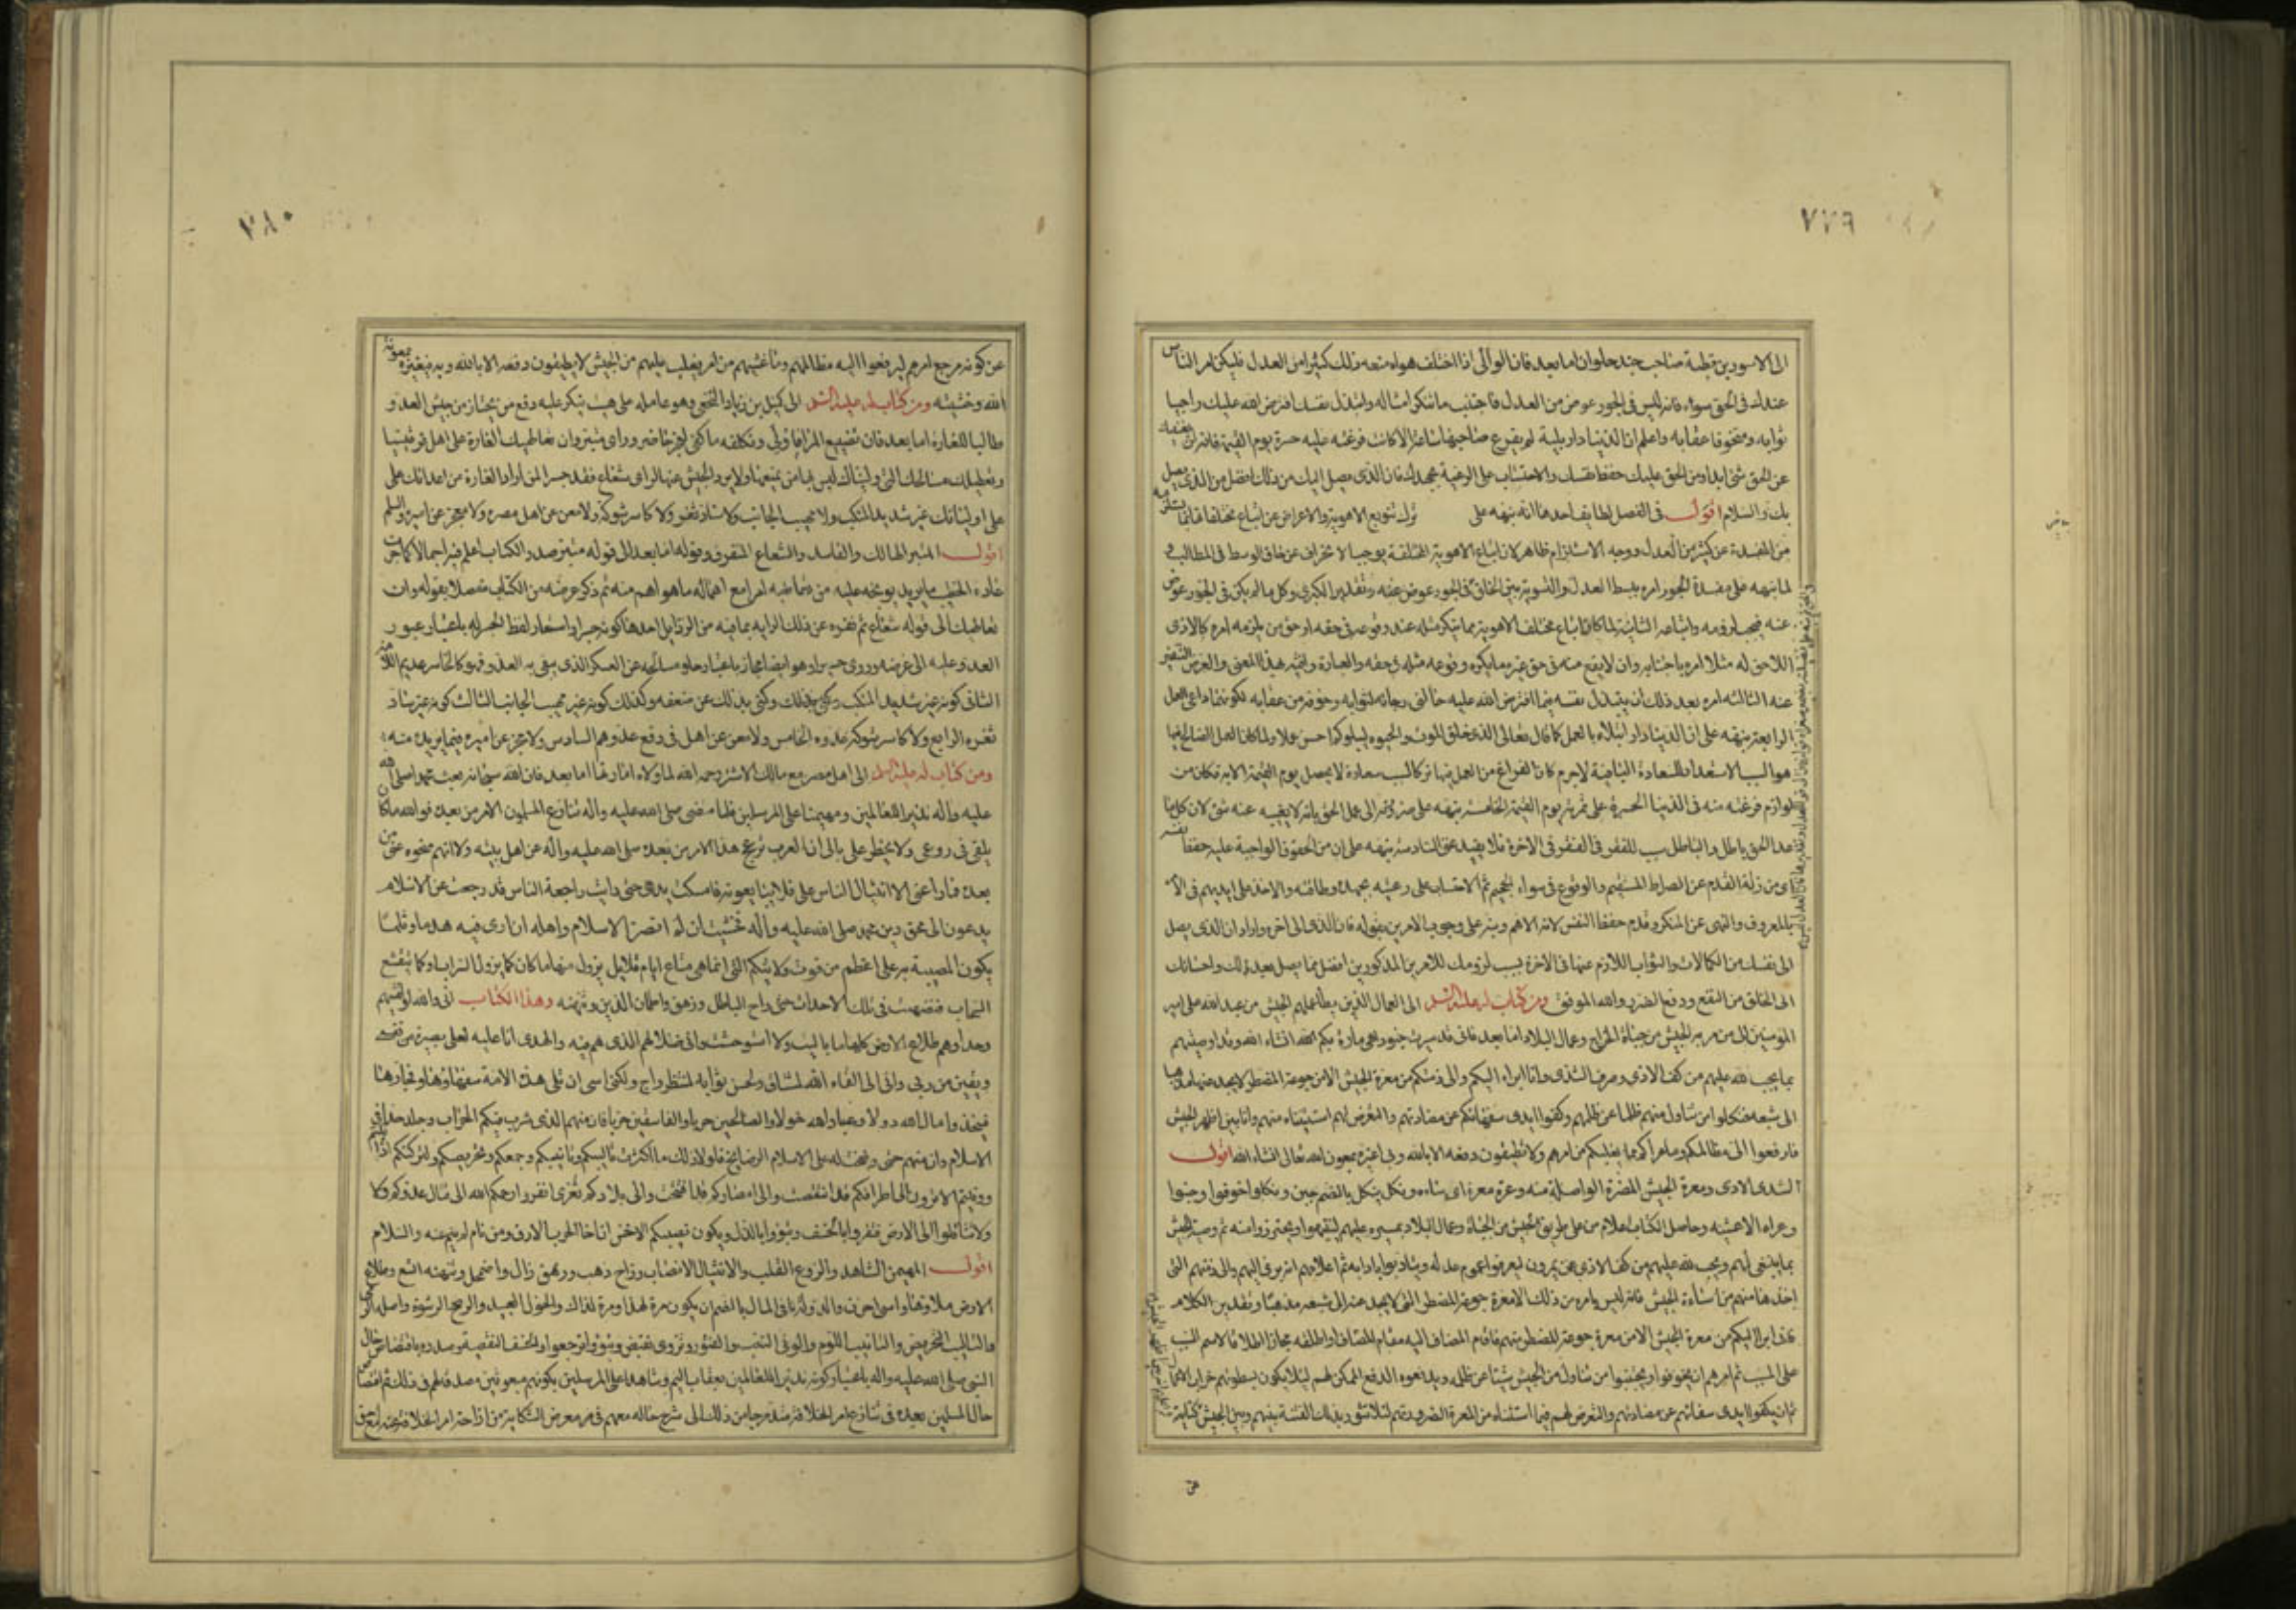 ٧٧٩
الى الاسود بن قطبة صاحب جند حلوان اما بعد فان الوالى اذا اختلف هواه منعه ذلك كثيرا من العدل فليكن امر الناس
عندك فى الحق سواء فانه ليس فى الجور عوض من العدل فاجتنب ما تنكر امثاله وابتذل نفسك فيما افترض الله عليك راجيا
ثوابه ومتخوفا عقابه واعلم ان الدنيا دار بلية لم يفرغ صاحبها ساعة الا كانت فرغته عليه حسرة يوم القيمة فانه لن يغنيك
عن الحق شئ ابدا ومن الحق عليك حفظ نفسك والاحتساب على الرعية بجهدك فان الذى يصل اليك من ذلك افضل من الذى يصل
بك والسلام اقول فى الفصل لطايف احدها انه نبهه على ترك تنويع الاهوية والاعراض عن اتباع مختلفاتها بما يستلزمه
من المفسدة عن كثير من العدل ووجه الاستلزام ظاهر لان اتباع الاهوية المختلفة يوجب الانحراف عن حاق الوسط فى المطالب
لما نبهه على مفسدة الجور امره ببسط العدل والتسوية بين الخلق فى الجور عوض عنه وتقدير الكبرى وكل ما لم يكن فى الجور عوض
عنه فيجب لزومه واتباعه الثانية لما كان اتباع مختلف الاهوية مما يتنكر مثله عند وقوعه فى حقه او حق من يلزمه امره كالاذى
اللاحق له مثلا امره باجتنابه وان لا يقع منه فى حق غيره ما يكره وقوع مثله فى حقه والعبارة وافية بهذا المعنى والغرض التنفير
عنه الثالثة امره بعد ذلك ان يبتذل نفسه فيما افترض الله عليه حالتى رجائه لثوابه وخوفه من عقابه لكونهما داعى العمل
الرابعة نبهه على ان الدنيا دار ابتلاء بالعمل كما قال تعالى الذى خلق الموت والحيوة ليبلوكم احسن عملا ولما كان العمل الصالح فيها
هو السبب الاستعداد للسعادة الباقية لا جرم كان الفراغ من العمل فيها ترك السبب سعادة لا يحصل يوم القيمة الا به فكان من
لوازم فرغته منه فى الدنيا الحسرة على ثمرته يوم القيمة الخامسة نبهه على ضرورته الى عمل الحق بانه لا يغنيه عنه شئ لان كل ما
عدا الحق باطل والباطل سبب للفقر فى الفقر فى الاخرة فلا يفيد غنى السادسة نبهه على ان من الحقوق الواجبة عليه حفظ نفسه
اى من زلة القدم عن الصراط المستقيم والوقوع فى سواء الجحيم ثم الاحتساب على رعيته بجهده وطاقته والاخذ على ايديهم فى الامر
بالمعروف والنهى عن المنكر وقدم حفظ النفس لانه الاهم ونبه على وجوب الامرين بقوله فان الذى الى اخره واراد ان الذى يصل
الى نفسك من الكمالات والثواب اللازم عنها فى الاخرة بسبب لزومك للامرين المذكورين افضل مما يصل بعدلك واحسانك
الى الخلق من النفع ودفع الضرر والله الموفق ومن كتاب له عليه السلم الى العمال الذين يطأ عملهم الجيش من عبد الله على امير
المؤمنين الى من مر به الجيش من جباة الخراج وعمال البلاد اما بعد فانى قد سيرت جنودا هى مارة بكم انشاء الله وقد اوصيتهم
بما يجب لله عليهم من كف الاذى وصرف الشذى وانا ابراء اليكم والى ذمتكم من معرة الجيش الا من جوعة المضطر لا يجد عنها مذهبا
الى شبعه فنكلوا من تناول منهم ظلما عن ظلمهم وكفوا ايدى سفهائكم عن مضادتهم والتعرض لهم فيما استثنيناه منهم وانا بين اظهر الجيش
فارفعوا الى مظالمكم وما عراكم مما يغلبكم من امرهم ولا تطيقون دفعه الا بالله وبى اغيره بمعونة الله تعالى انشاء الله اقول
الشذى الاذى ومعرة الجيش المضرة الواصلة منه وعره معرة اى ساءه ونكل ينكل بالضم جبن ونكلوا خوفوا وجبنوا
وعراه الامر غشيه وحاصل الكتاب اعلام من على طريق الجيش من الجباة وعمال البلاد بمسيره عليهم ليتنبهوا ويحترزوا منه ثم وصية الجيش
بما ينبغى لهم ويجب لله عليهم من كف الاذى عمن يمرون به ليعرفوا عموم عدله ويتادبوا بادابه ثم اعلامهم انه برئ اليهم والى ذمتهم التى
اخذها منهم من اساءة الجيش فانه ليس بامره من ذلك الا معرة جوعة المضطر الذى لا يجد عنها الى شبعه مذهبا وتقدير الكلام
فانى ابرء اليكم من معرة الجيش الا من معرة جوعة المضطر منهم فاقام المضاف اليه مقام المضاف او اطلقه مجازا اطلاقا لاسم السبب
على المسبب ثم امرهم ان يخوفوا ويجبنوا من تناول من الجيش شيئا عن ظلمه ويدفعوه الدفع الممكن لهم لئلا يكون بسطوتهم خراب الاعمال
ثم ان يكفوا ايدى سفهائهم عن مضادتهم والتعرض لهم فيما استثناه من المعرة الضرورية لهم لئلا تثور بذلك الفتنة بينهم وبين الجيش كناية
٧٨٠
عن كونه مرجع امرهم ليرفعوا اليه مظالمهم وما غشيهم من امر يغلب عليهم من الجيش لا يطيقون دفعه الا بالله وبه فيغيره بمعونة
الله وخشيته ومن كتاب له عليه السلم الى كميل بن زياد النخعى وهو عامله على هيت ينكر عليه دفع من يجتاز من جيش العدو
طالبا للغارة اما بعد فان تضييع المرء ما ولى وتكلفه ما كفى لعجز حاضر وراى متبر وان تعاطيك الغارة على اهل قرقيسيا
وتعطيلك مسالحك التى وليناك ليس لها من يمنعها ولا يرد الجيش عنها لراى شعاع فقد صرت جسرا لمن اراد الغارة من اعدائك على
على اوليائك غير شديد المنكب ولا مهيب الجانب ولا ساد ثغرة ولا كاسر شوكة ولا مغن عن اهل مصره ولا مجز عن اميره والسلم
اقول المتبر الهالك والفاسد والشعاع المتفرق وقوله اما بعد الى قوله متبر صدر الكتاب اعلم فيه اجمالا كما جرت
عادة الخطيب ما يريد يوبخه عليه من ثم ذكر غرضه من الكتاب مفصلا بقوله وان
تعاطيك الى قوله شعاع ثم نفره عن ذلك الراى بما فيه من الرذايل احدها كونه جسرا واستعار لفظ الجسر له باعتبار عبور
العدو عليه الى غرضه وروى حسرا وهو ايضا مجاز باعتبار خلو مسالحه عن العسكر الذى يبقى به العدو فهو كالحاسر عديم اللامة
الثانى كونه غير شديد المنكب وكنى بذلك عن ضعفه وكذلك كونه غير مهيب الجانب الثالث كونه غير ساد
ثغره الرابع ولا كاسر شوكة عدوه الخامس ولا مغن عن اهل فى دفع عدوهم السادس ولا مجز عن اميره فيما يريده منه
ومن كتاب له عليه السلم الى اهل مصر مع مالك الاشتر رحمه الله لما ولاه امارتها اما بعد فان الله سبحانه بعث محمدا صلى الله
عليه واله نذيرا للعالمين ومهيمنا على المرسلين فلما مضى صلى الله عليه واله تنازع المسلمون الامر من بعده فوالله ما كان
يلقى فى روعى ولا يخطر على بالى ان العرب تزعج هذا الامر من بعده صلى الله عليه واله عن اهل بيته ولا انهم منحوه عنى من
بعده فما راعنى الا انثيال الناس على فلان يبايعونه فامسكت يدى حتى رايت راجعة الناس قد رجعت عن الاسلام
يدعون الى محق دين محمد صلى الله عليه واله فخشيت ان لم انصر الاسلام واهله ان ارى فيه هدما او ثلما
يكون المصيبة به على اعظم من فوت ولايتكم التى انما هى متاع ايام قلايل يزول منها ما كان كما يزول السراب او كما يتقشع
السحاب فنهضت فى تلك الاحداث حتى زاح الباطل وزهق واطمان الدين وتنهنه وهذا الكتاب انى والله لو لقيتهم
وحدا وهم طلاع الارض كلها ما باليت ولا استوحشت وانى من ضلالهم الذى هم فيه والهدى انا عليه لعلى بصيرة من نفسى
ويقين من ربى وانى الى لقاء الله لمشتاق ولحسن ثوابه لمنتظر راج ولكنى اسى ان يلى هذه الامة سفهاؤها وفجارها
فيتخذوا مال الله دولا وعباد الله خولا والصالحين حربا والفاسقين حزبا فان منهم الذى شرب فيكم الحراب وجلد حدا فى
الاسلام وان منهم حتى رضخت له على الاسلام الرضايخ فلولا ذلك ما اكثرت تاليبكم وتانيبكم وجمعكم وتحريضكم ولتركتكم اذ ابيتم
وونيتم الا ترون الى اطرافكم قد انتقصت والى امصاركم قد افتتحت والى بلادكم تغزى انفروا رحمكم الله الى قتال عدوكم ولا
ولا تثاقلوا الى الارض فتقروا بالخسف وتبوؤا بالذل ويكون نصيبكم الاخس ان اخا الحرب الارق ومن نام لم ينم عنه والسلام
اقول المهيمن الشاهد والروع القلب والانثيال الانصباب وزاح ذهب وزهق زال واضمحل وتنهنه اتسع وطلاع
الارض ملاؤها واسى احزن والدولة فى المال بالضم ان يكون مرة لهذا ومرة لذاك والخول العبيد والرضخ الرشوة واصله الرمى
والتاليب التحريض والتانيب اللوم والونى التعب والفتور وتزوى تقبض وتبوؤا ترجعوا والخسف النقيصة وصدره باقتصاص حال
النبى صلى الله عليه واله باعتبار كونه نذيرا للعالمين بعقاب اليم وشاهدا على المرسلين بكونهم مبعوثين مصدقا لهم فى ذلك ثم اقتصاص
حال المسلمين بعده فى تنازع امر الخلافة متدرجا من ذلك الى شرح حاله معهم فى معرض الشكاية من ازاحة امر الخلافة عنه